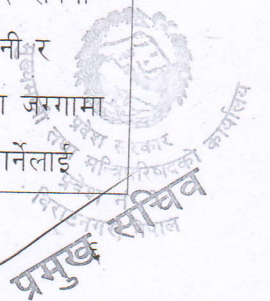 नी र
जग्गामा
गर्नेलाई
प्रदेश सरकार
मुख्यमन्त्री तथा मन्त्रिपरिषदको कार्यालय
विराटनगर, नेपाल
प्रमुख सचिव
६